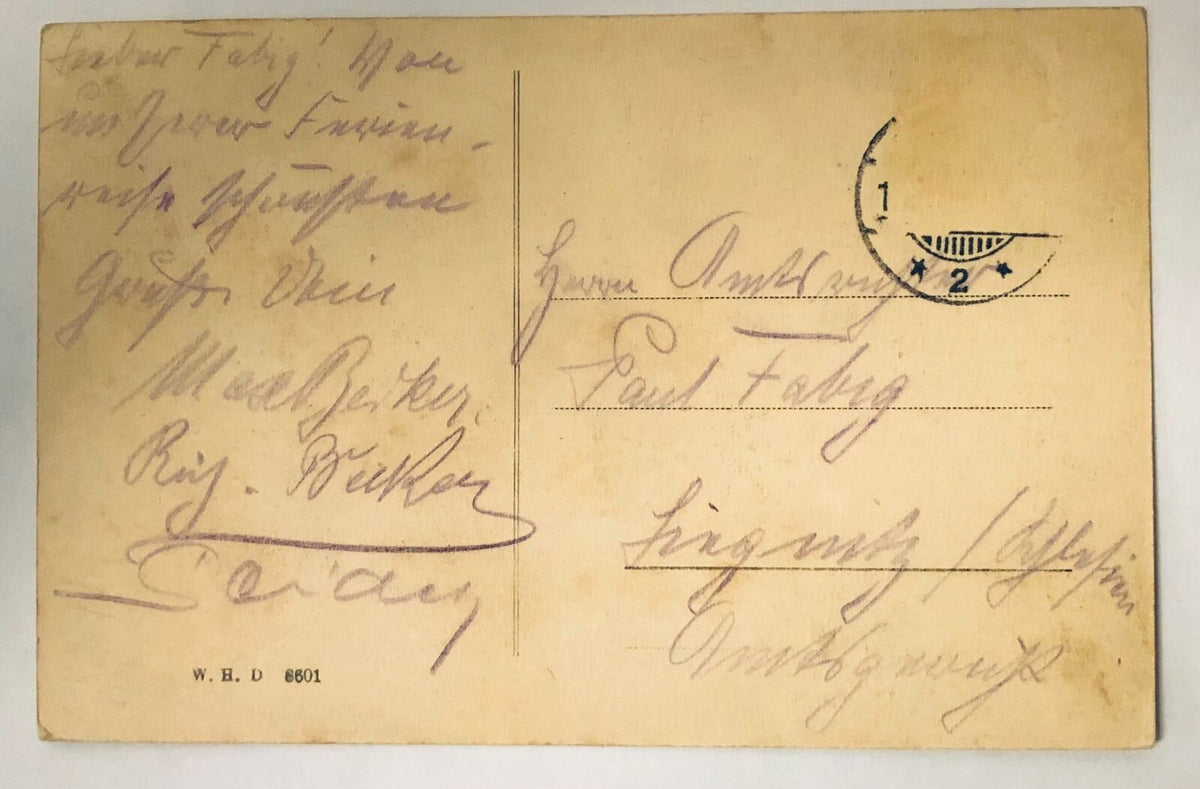 Lieber Fabig! Von
unserer Ferien-
reise schönsten
Gruß. Dein
Max Becker.
Rich. Becker
W. H. D 8601
1
* 2 *
Herrn Amtsrichter
Paul Fabig
Liegnitz / Schlesien
Amtsgericht